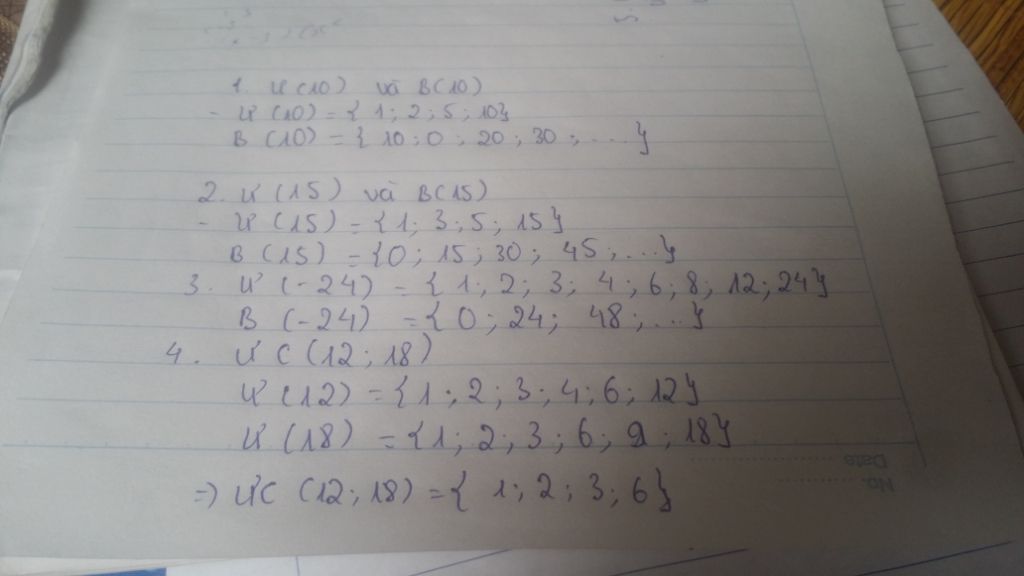 1. Ư(10) và B(10)
- Ư(10) = { 1; 2; 5; 10}
B (10) = { 10; 0; 20; 30; ....}
2. Ư(15) và B(15)
- Ư(15) = {1; 3; 5; 15}
B (15) = {0; 15; 30; 45; ...}
3. Ư (-24) = { 1; 2; 3; 4; 6; 8; 12; 24}
B (-24) = { 0; 24; 48; ...}
4. ƯC (12; 18)
Ư (12) = {1; 2; 3; 4; 6; 12}
Ư (18) = {1; 2; 3; 6; 9; 18}
=) ƯC (12; 18) = { 1; 2; 3; 6}
No.
Date